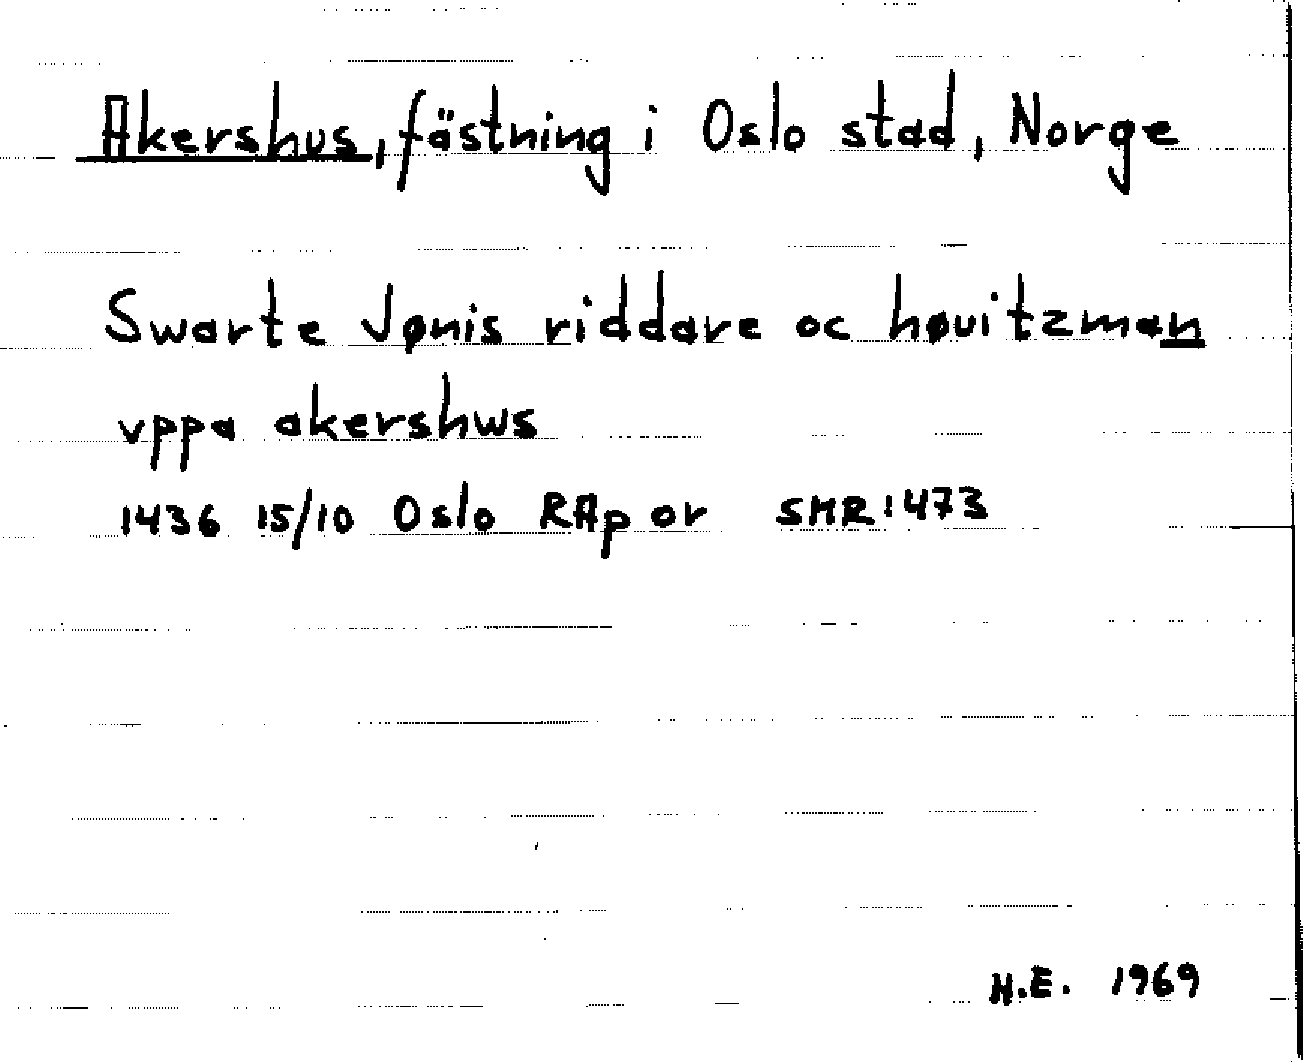 Akershus, fästning i Oslo stad, Norge
Swarte Jønis riddare oc høuitzman
vppa akershws
1436 15/10 Oslo RAp or SMR 1473
H.E. 1969